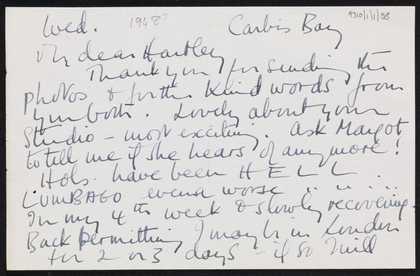 Wed. 1948? Carbis Bay 9310/1/1/38
My dear Hartley
Thank you for sending the
photos & for the kind words from
you both. Lovely about your
Studio – most exciting. Ask Margot
to tell me if she hears of any more!
Hols. have been HELL
LUMBAGO even worse ... ...
In my 4th week & slowly recovering.
Back permitting I may be in London
for 2 or 3 days – if so I will